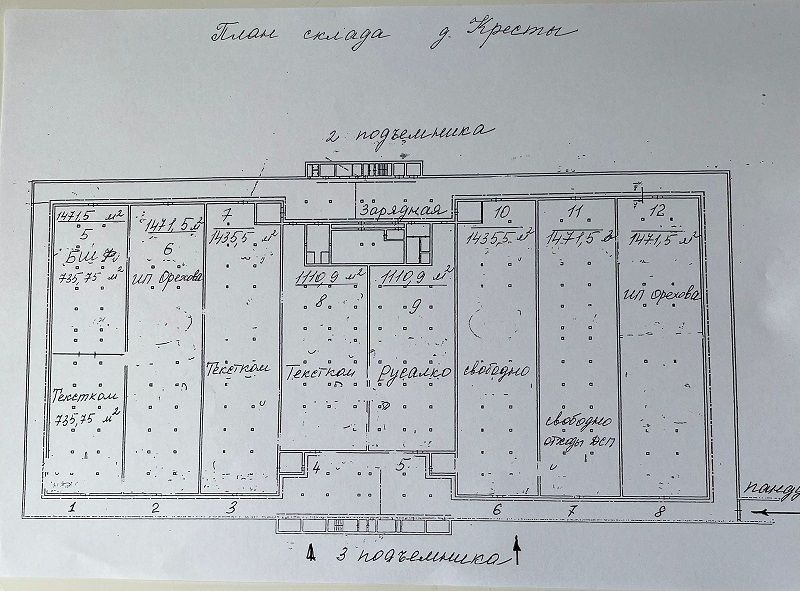 План склада д. Кресты
2 подъемника
Зарядная
1471,5 м²
5
БШФ
735,75 м²
Текстком
735,75 м²
1471,5 м²
6
ип Орехова
7
1435,5 м²
Текстком
1110,9 м²
8
Текстком
1110,9 м²
9
Русалко
10
1435,5 м²
свободно
11
1471,5 м²
свободно
отходы дсп
12
1471,5 м²
ип Орехова
4 5
1 2 3 6 7 8
панду
3 подъемника